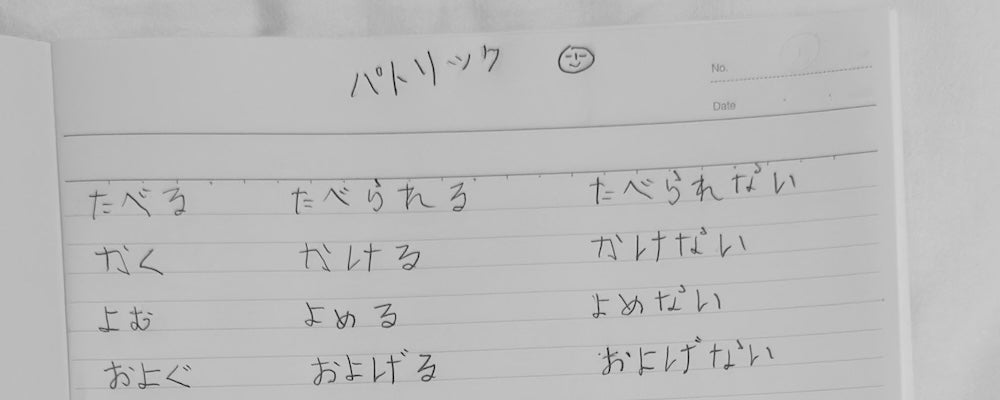 パトリック
No.
Date
たべる たべられる たべられない
かく かける かけない
よむ よめる よめない
およぐ およげる およげない